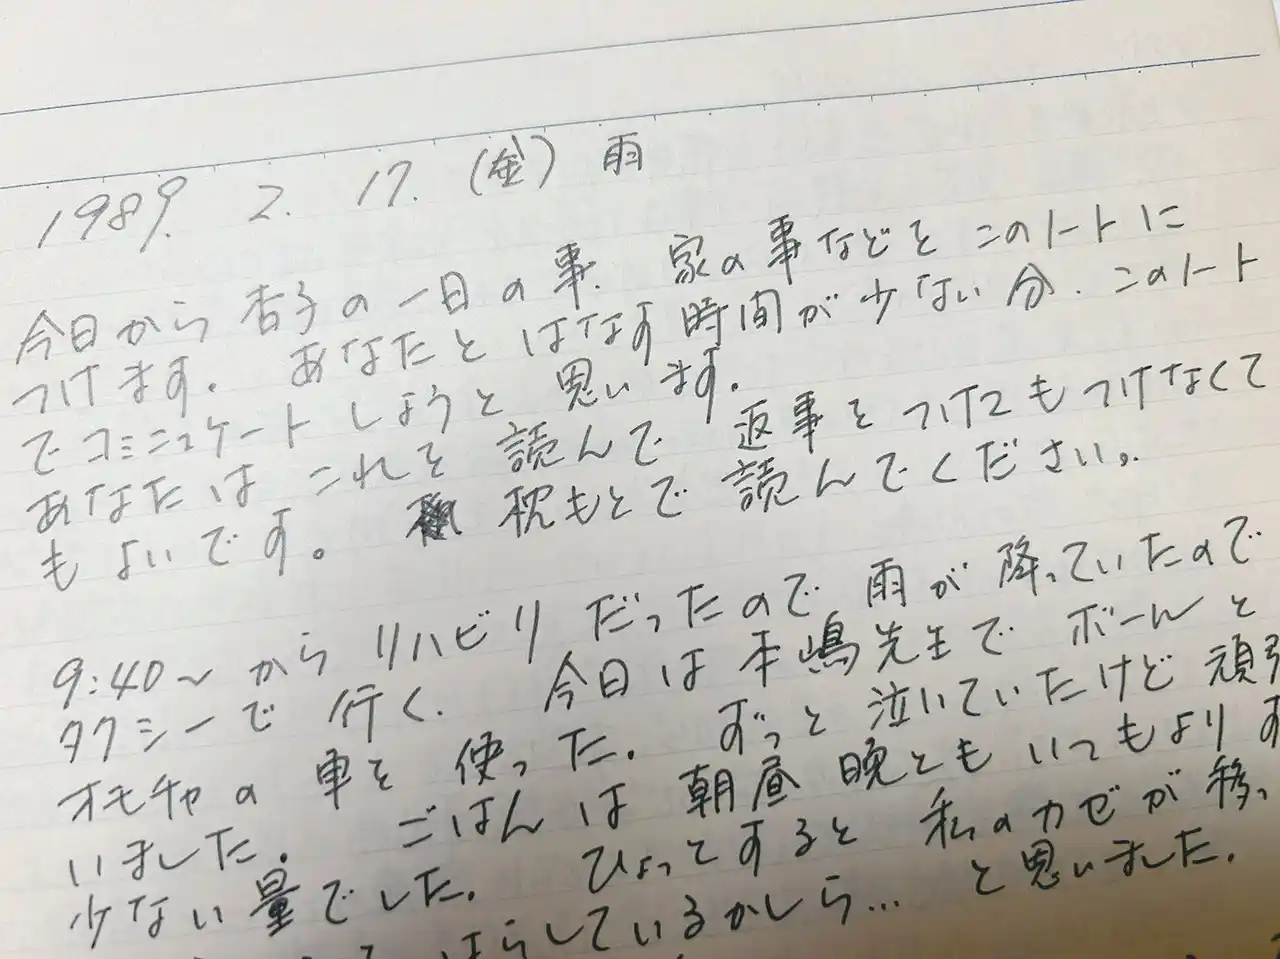 1989. 2. 17. (金) 雨
今日から杏子の一日の事、家の事などをこのノートに
つけます。あなたとはなす時間が少ない分、このノート
でコミニュケートしようと思います。
あなたはこれを読んで返事をつけてもつけなくて
もよいです。枕もとで読んでください。
9:40〜からリハビリだったので雨が降っていたので
タクシーで行く。今日は本嶋先生でボールと
オモチャの車を使った。ずっと泣いていたけど頑張
いました。ごはんは朝昼晩ともいつもより
少ない量でした。ひょっとすると私のカゼが移っ
しているかしら…と思いました。